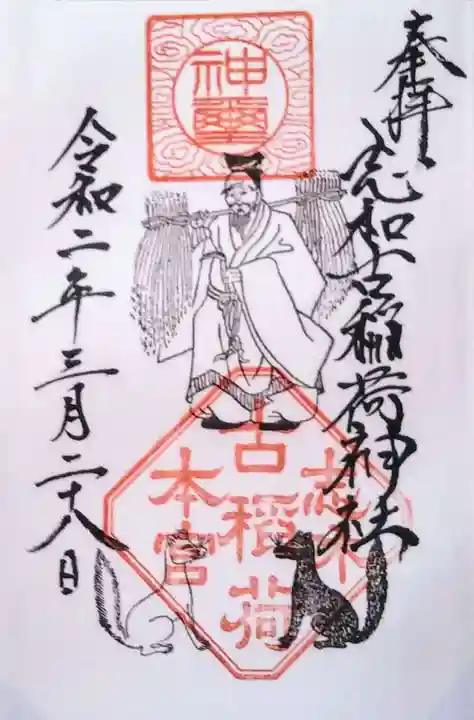 奉拝
志和古稲荷神社
神璽
志和
古稲荷
本宮
令和二年三月二十八日